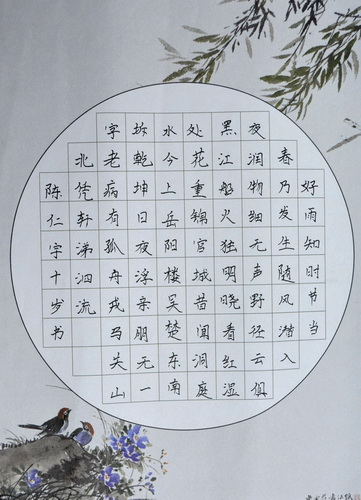 好雨知时节当
春乃发生随风潜入
夜润物细无声野径云俱
黑江船火独明晓看红湿
处花重锦官城昔闻洞庭
水今上岳阳楼吴楚东南
坼乾坤日夜浮亲朋无一
字老病有孤舟戎马关山
北凭轩涕泗流
陈仁宇十岁书